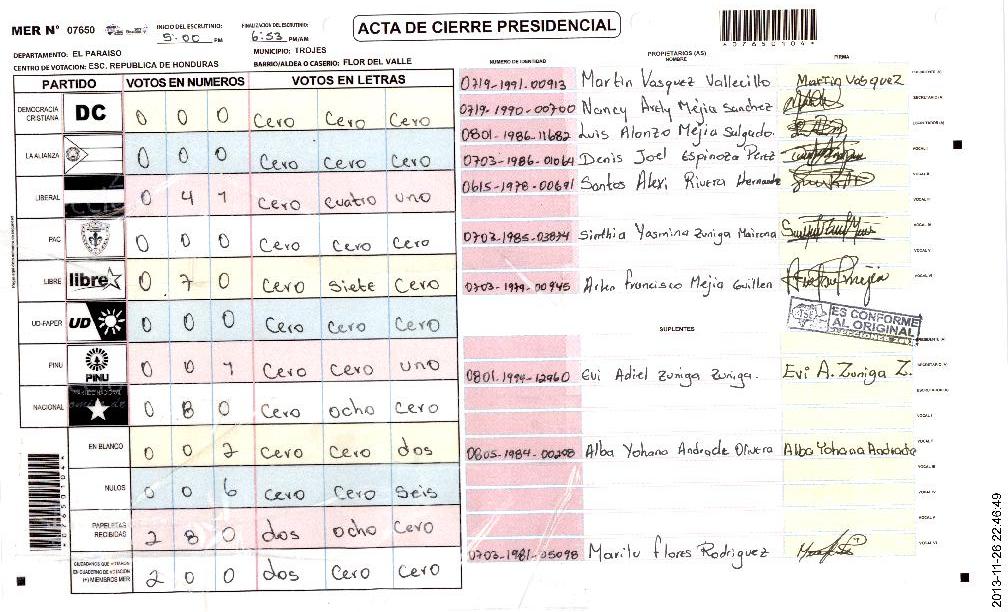 MER N° 07650
INICIO DEL ESCRUTINIO:
5:00 PM
FINALIZACION DEL ESCRUTINIO:
6:53 PM/AM
ACTA DE CIERRE PRESIDENCIAL
*07650104*
DEPARTAMENTO: EL PARAISO
MUNICIPIO: TROJES
CENTRO DE VOTACION: ESC. REPUBLICA DE HONDURAS
BARRIO/ALDEA O CASERIO: FLOR DEL VALLE
PARTIDO VOTOS EN NUMEROS VOTOS EN LETRAS
DEMOCRACIA CRISTIANA DC 0 0 0 Cero Cero Cero
LA ALIANZA 0 0 0 Cero Cero Cero
LIBERAL 0 4 1 Cero cuatro uno
PAC 0 0 0 Cero Cero Cero
LIBRE libre 0 7 0 Cero Siete Cero
UD-FAPER UD 0 0 0 Cero Cero Cero
PINU PINU 0 0 1 Cero Cero uno
NACIONAL 0 8 0 Cero ocho Cero
EN BLANCO 0 0 2 Cero Cero dos
NULOS 0 0 6 Cero Cero Seis
PAPELETAS RECIBIDAS 2 8 0 dos ocho Cero
CIUDADANOS QUE VOTARON EN CUADERNO DE VOTACION (+) MIEMBROS MER 2 0 0 dos Cero Cero
*07650104*
NUMERO DE IDENTIDAD PROPIETARIOS (AS) NOMBRE FIRMA
0719-1991-00913 Martin Vasquez Vallecillo Martin Vasquez
0719-1990-00700 Nancy Arely Mejia Sanchez SECRETARIO/A
0801-1986-11682 Luis Alonzo Mejia Salgado. ESCRUTADOR (A)
0703-1986-01064 Denis Joel Espinoza Perez VOCAL I
0615-1978-00691 Santos Alexi Rivera Hernande VOCAL II
VOCAL III
0703-1985-03874 Sinthia Yasmina Zuniga Mairena VOCAL IV
VOCAL V
0703-1979-00945 Arlen Francisco Mejia Guillen VOCAL VI
ES CONFORME
AL ORIGINAL
SUPLENTES
0801-1994-12960 Evi Adiel Zuniga Zuniga. Evi A. Zuniga Z. SECRETARIO (A)
ESCRUTADOR (A)
VOCAL I
0805-1984-00298 Alba Yohana Andrade Olivera Alba Yohana Andrade VOCAL II
VOCAL III
VOCAL IV
VOCAL V
0703-1981-05098 Marilu Flores Rodriguez VOCAL VI
2013-11-26 22:46:49